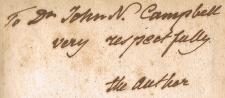 To Dr John N. Campbell
very respectfully
the author